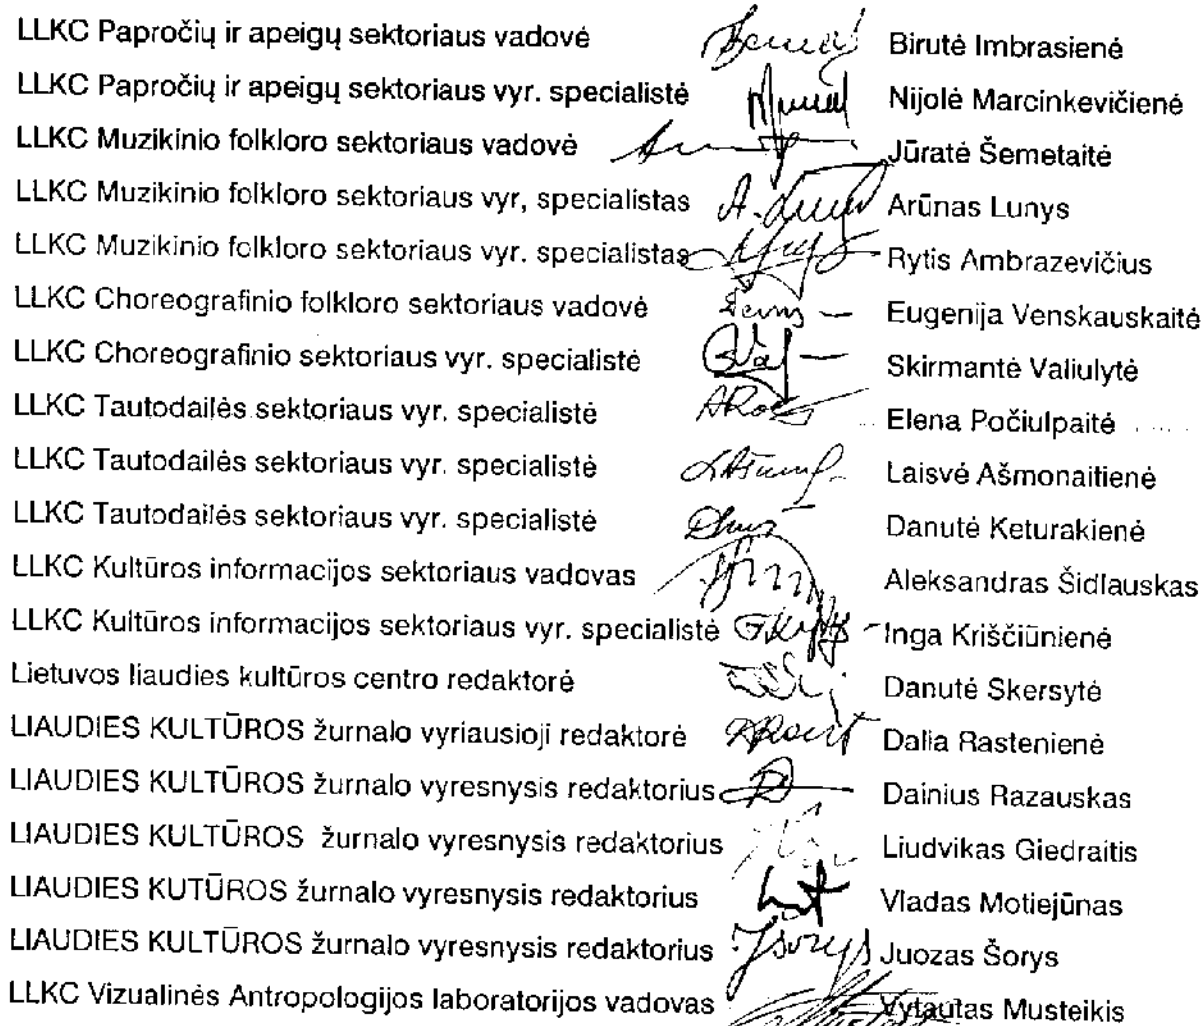 LLKC Papročių ir apeigų sektoriaus vadovė Birutė Imbrasienė
LLKC Papročių ir apeigų sektoriaus vyr. specialistė Nijolė Marcinkevičienė
LLKC Muzikinio folkloro sektoriaus vadovė Jūratė Šemetaitė
LLKC Muzikinio folkloro sektoriaus vyr, specialistas Arūnas Lunys
LLKC Muzikinio folkloro sektoriaus vyr. specialistas Rytis Ambrazevičius
LLKC Choreografinio folkloro sektoriaus vadovė Eugenija Venskauskaitė
LLKC Choreografinio sektoriaus vyr. specialistė Skirmantė Valiulytė
LLKC Tautodailės sektoriaus vyr. specialistė Elena Počiulpaitė
LLKC Tautodailės sektoriaus vyr. specialistė Laisvė Ašmonaitienė
LLKC Tautodailės sektoriaus vyr. specialistė Danutė Keturakienė
LLKC Kultūros informacijos sektoriaus vadovas Aleksandras Šidlauskas
LLKC Kultūros informacijos sektoriaus vyr. specialistė Inga Kriščiūnienė
Lietuvos liaudies kultūros centro redaktorė Danutė Skersytė
LIAUDIES KULTŪROS žurnalo vyriausioji redaktorė Dalia Rastenienė
LIAUDIES KULTŪROS žurnalo vyresnysis redaktorius Dainius Razauskas
LIAUDIES KULTŪROS žurnalo vyresnysis redaktorius Liudvikas Giedraitis
LIAUDIES KUTŪROS žurnalo vyresnysis redaktorius Vladas Motiejūnas
LIAUDIES KULTŪROS žurnalo vyresnysis redaktorius Juozas Šorys
LLKC Vizualinės Antropologijos laboratorijos vadovas Vytautas Musteikis